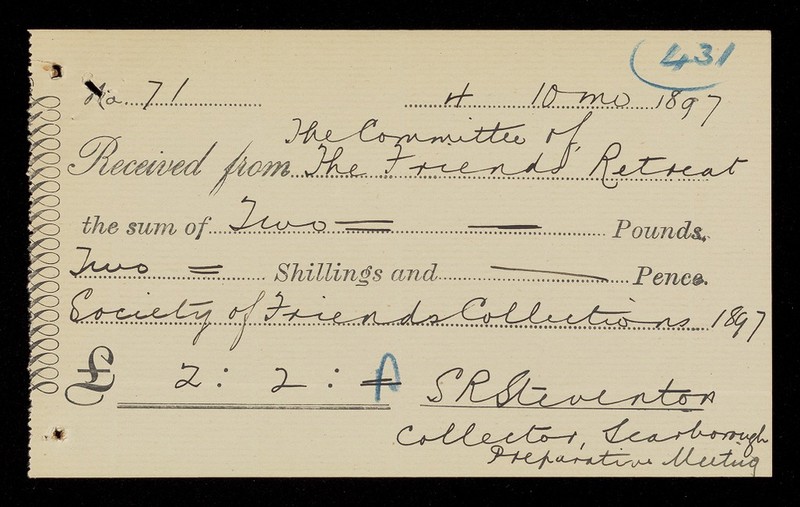 431
No. 71 4 10 mo 1897
The Committee of
Received from The Friends' Retreat
the sum of Two = — Pounds.
Two = Shillings and — Pence.
Society of Friends Collections 1897
£ 2 : 2 : = A S R Steventon
Collector, Scarborough
Preparative Meeting